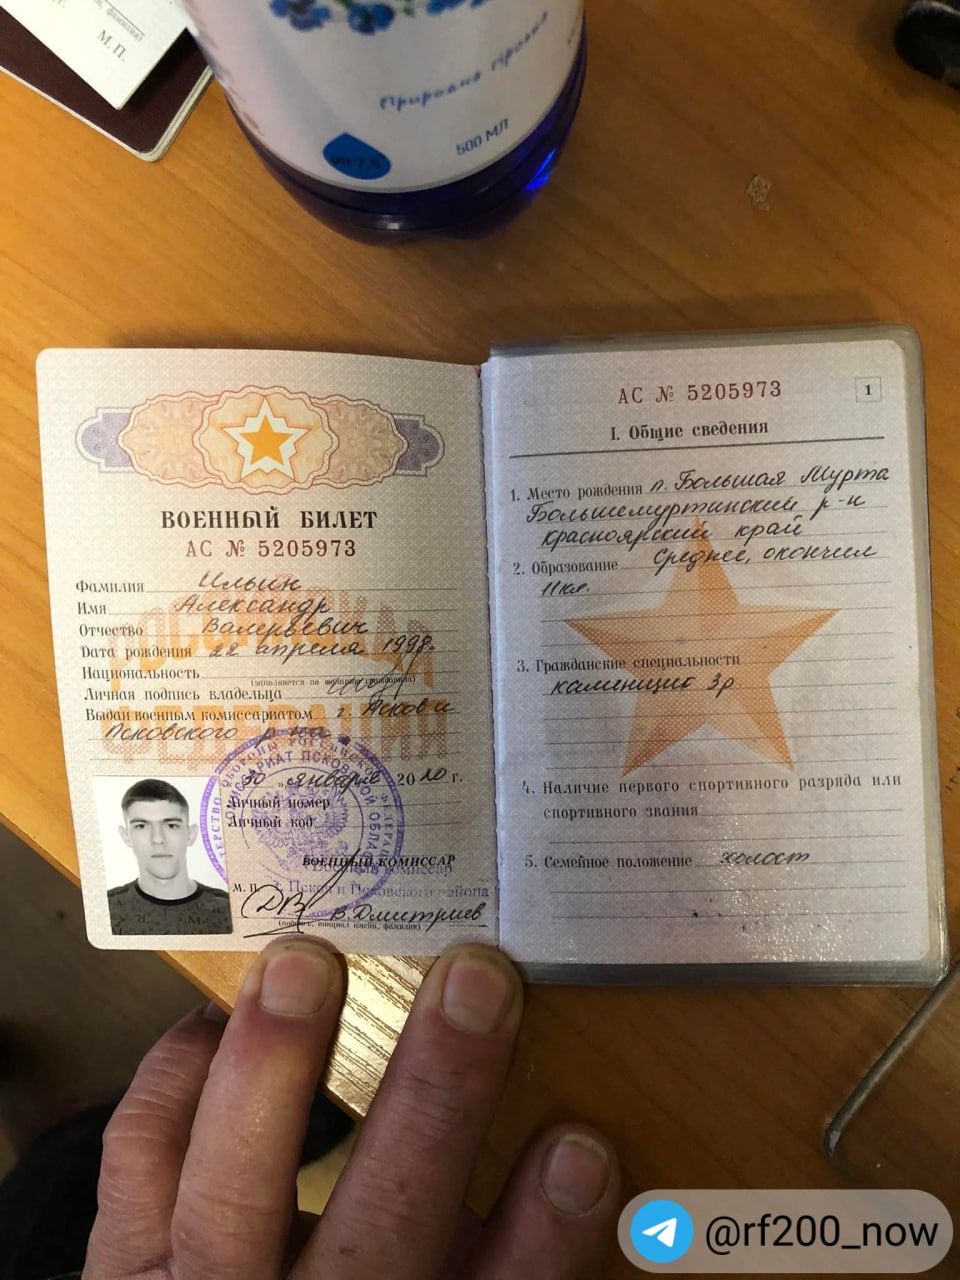 М. П.
Природна гірська
рН 7,5
500 МЛ
ВОЕННЫЙ БИЛЕТ
АС № 5205973
Фамилия Ильин
Имя Александр
Отчество Валерьевич
Дата рождения 22 апреля 1998г.
Национальность
(заполняется по желанию гражданина)
Личная подпись владельца
Выдан военным комиссариатом г. Псков и
Псковского р-на
30 января 2020 г.
Личный номер
Личный код
ВОЕННЫЙ КОМИССАР
Военный комиссар
г. Псков и Псковского района
М. П.
В. Дмитриев
(подпись, инициал имени, фамилия)
АС № 5205973
1
I. Общие сведения
1. Место рождения п. Большая Мурта
Большемуртинский р-н
Красноярский край
2. Образование Среднее, окончил
11кл.
3. Гражданские специальности
каменщик 3р
4. Наличие первого спортивного разряда или
спортивного звания
5. Семейное положение холост
@rf200_now